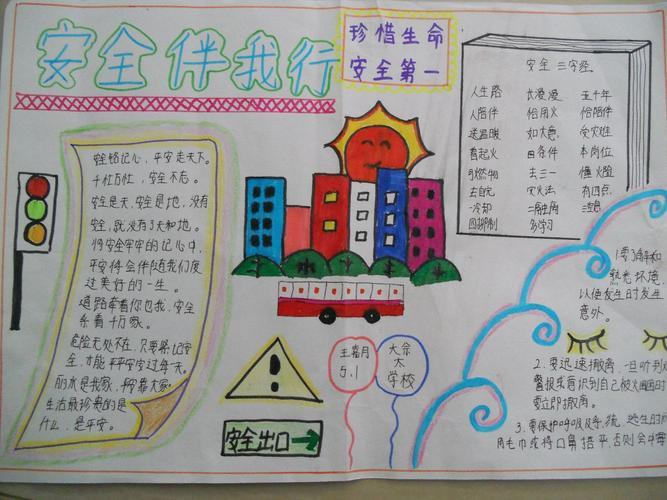 安全伴我行
珍惜生命
安全第一
安全铭记心,平安走天下。
千忙万忙,安全不忘。
安全是天,安全是地,没有
安全,就没有了天和地。
将安全牢牢的记心中,
平安将会伴随我们度
过美好的一生。
道路牵着你也我,安全
系着千万家。
危险无处不在,只要将记安
全,才能平平安安过每一天。
生活最珍贵的是
什么,是平安。
安全出口
王
月
5.1
大佘
太
学校
安全 三字经
人生路 长漫漫 五千年
人陪伴 恰用火 恰陪伴
送温暖 如大意 受灾难
看起火 四条件 本岗位
可燃物 去三一 懂火险
去自完 灭火法 有四点
一冷却 二隔 三窒息
四抑制 多学习
1.要了解和
熟悉环境,
以便发生时发生
意外。
2.要迅速撤离,一旦听到
警报或意识到自己被火围困
要立即撤离。
3.要保护呼吸系统,逃生时
用毛巾或将口鼻捂平,否则会中毒